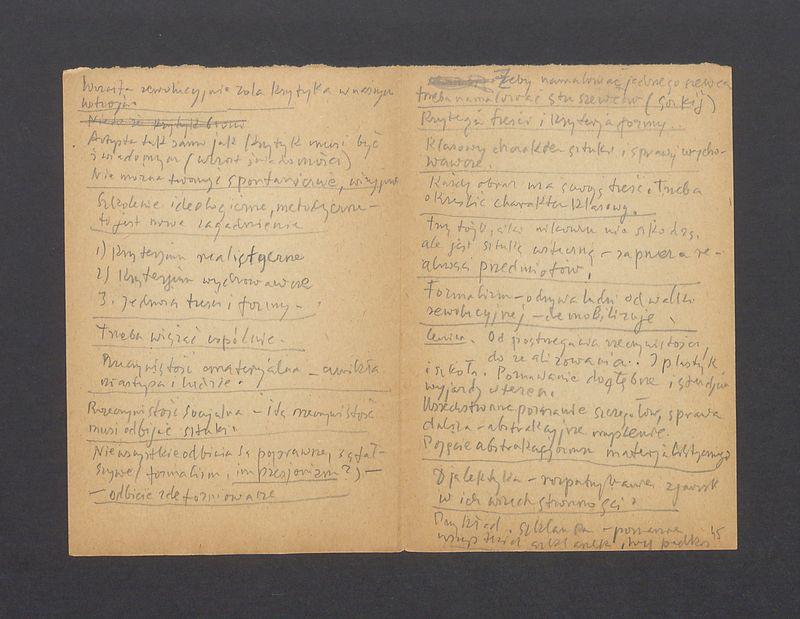 Wzrasta rewolucyjnie rola krytyka w naszym
ustroju.
Artysta tak samo jak krytyk musi być
świadomym (wzrost świadomości)
Nie można tworzyć spontanicznie,
Szkolenie ideologiczne, metodyczne –
to jest nowe zagadnienie
1) Kryterjum realistyczne
2) Kryterjum wychowawcze
3. Jedność treści i formy –
Trzeba wiązać wspólnie.
Rzeczywistość materjalna –
i ludzie.
Rzeczywistość socjalna – i tą rzeczywistość
musi odbijać sztuka.
Nie wszystkie odbicia są poprawne, są fał-
szywe / formalizm, impresjonizm?) –
– odbicie zdeformowane
Żeby namalować jednego szewca
trzeba namalować stu szewców (Gorkij)
Kryterja treści i kryterja formy...
Klasowy charakter sztuki i sprawy wycho-
wawcze.
Każdy obraz ma swoją treść. Trzeba
określić charakter klasowy.
nikomu nie szkodzą,
ale jest sztuką wsteczną – zaprzecza re-
alności przedmiotów.
Formalizm – odrywa ludzi od walki
rewolucyjnej – demobilizuje
Lenin. Od postrzegania rzeczywistości,
do realizowania.. I plastyk
i szkoła. Poznawanie dogłębne i studja
wyjazdy w teren.
Wszechstronne poznanie szczegółów, sprawa
dalsza – abstrakcyjne myślenie.
Pojęcie abstrakcjonizmu materjalistycznego
Djalektyka – rozpatrywanie zjawisk
w ich wszechstronności?
Przykład. szklanka –
wszystkich szklanek,
45